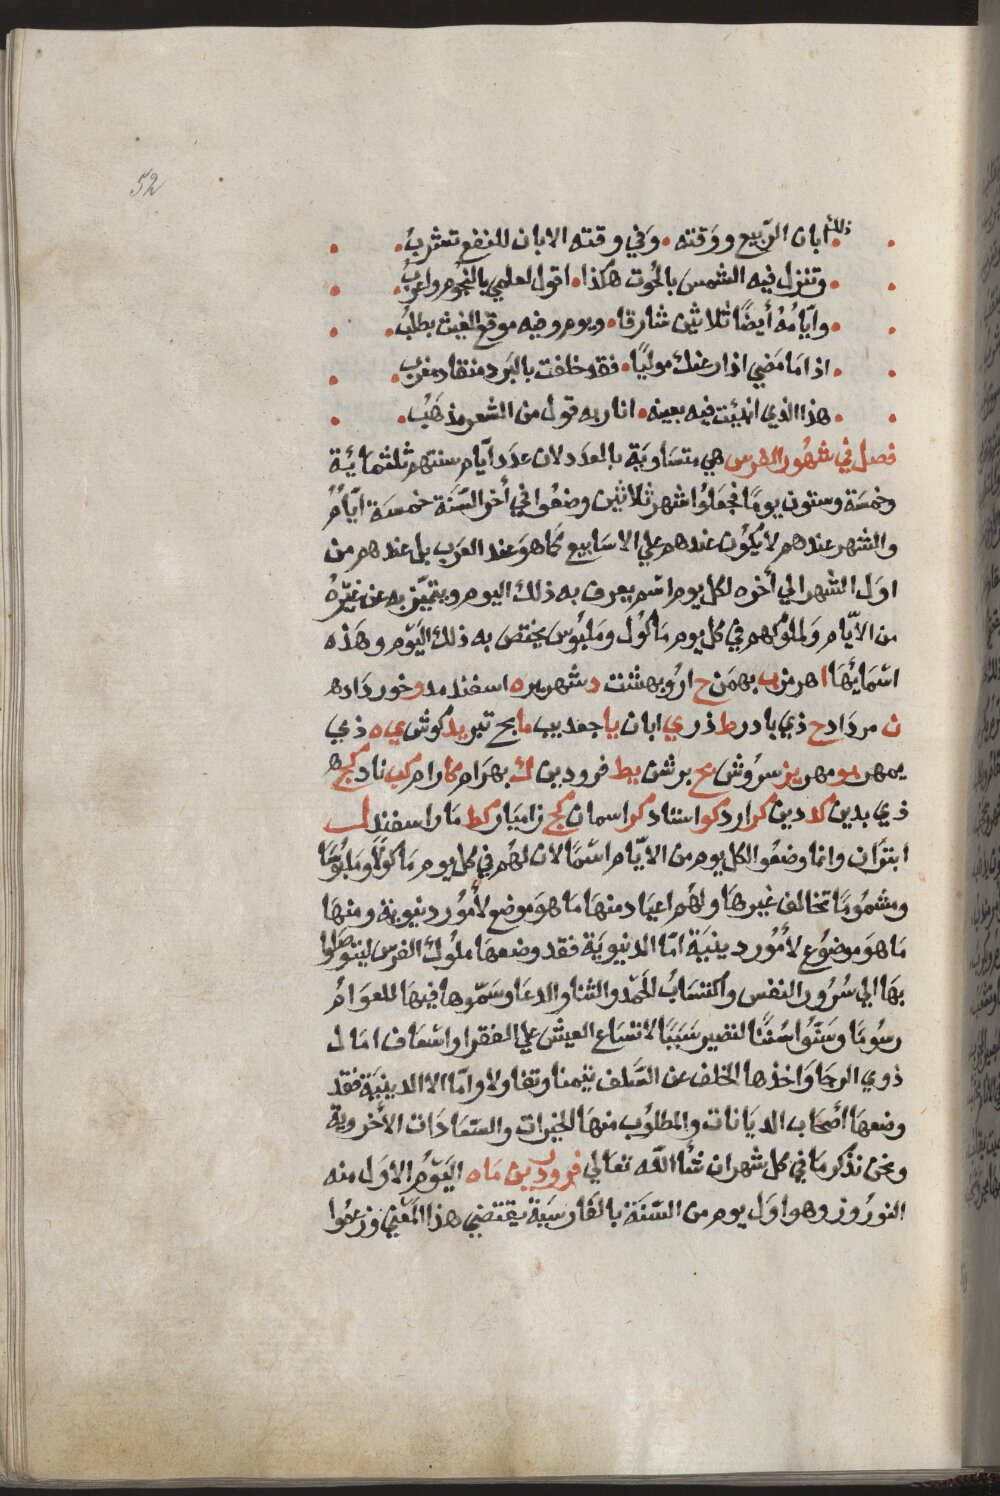 52
ذلك أبان الرّبيع ووقته • وفي وقته الابان للنفع تعثرب •
• وتنزل فيه الشمس بالحُوت هكذا • اقول لعلمي بالنجُوم واعربُ •
• وايّامُهُ أيضًا ثلاثين شارقا • ويوم وفيه موقع الغيث يطلبُ •
• اذا مَا مَضي اذار عنك موليًا • فقد خلفت بالبَرد منقاد مغرب •
• هذا الذي انبئت فيه بعينه • انار به قول من الشعر مذهَبُ •
فصل في شهُور الفرس هي متسَاويَة بالعدَد لان عدَد آيّام سنتهم ثلثمايُة
وخمسَة وستون يومًا فجعَلوُا شهر ثلاثين وضعُوا في أخر السّنَة خمسَة ايّامٌ
والشهر عندهم لا يكوُن عندهم علي الاسَابيع كمَا هوَ عند العرَب بل عندهم من
اوَل الشهر الي أخره لكل يوم اسْم يعرف به ذلك اليوم ويتميّز به عن غيرُه
من الاّيام ولملوُكهم في كل يوم مَاكوُل ومَلبُوس يختص به ذلك اليَوْم وهَذه
اسْمَايُهَا ا هرمز ب بهمَن ح اروبهشت د شهرير ه اسفندمد و خورداده
ن مردَاد ح ذي بادر ط ذر ي ابان يا جعد يب ما بج تير يد كوش ي ه ذي
بمهر يو مهر يز سرُوش يح برشن يط فرودين ك بهرَام كا رام كب ناد كج ه
ذي بدين كد دين كر ارد كو استاد كر اسمان كج زاميَار كط مَاراسفند ل
ابتوَان وانما وضعُوا لكل يوم من الايّام اسْمًا لان لهُم في كل يوم مَاكولاً ومَلبُوسًا
ومشمُومًا تخالف غيرهَا ولهُم اعيَاد منهَا مَا هوَ موضع لأمُور دنيوية ومنهَا
مَا هوَ موضوُع لأمُور دينيَة امّا الدنيويَة فقد وضعهَا ملُوك الفرس ليتوصَلوا
بهَا الي سُرُور النفس واكتسَابُ الحَمْد والثنا والدعَا وسَمّوها فيهَا للعوَامُ
رسُومَا وسَنّوُا سُننًا لتصير سَببًا لاتسَاع العيش علي الفقرا واسْعَاف امَال
ذوي الرجَا وَاخذها الخلف عن السّلف تيمنا وتفاولا وامّا الا الدينيَة فقد
وضعهَا أصْحَاب الديَانات والمطلوُب منهَا الخيرات والسّعَادَات الأخروية
ونحن نذكر مَا في كل شهر ان شَأ اللّه تعَالي فرودين مَاه اليَوْمُ الاوَل منه
النورُوز وهو اوَل يوم من السّنَة بالفَارسيَة يقتضي هذا المَعْني وزعمُوا